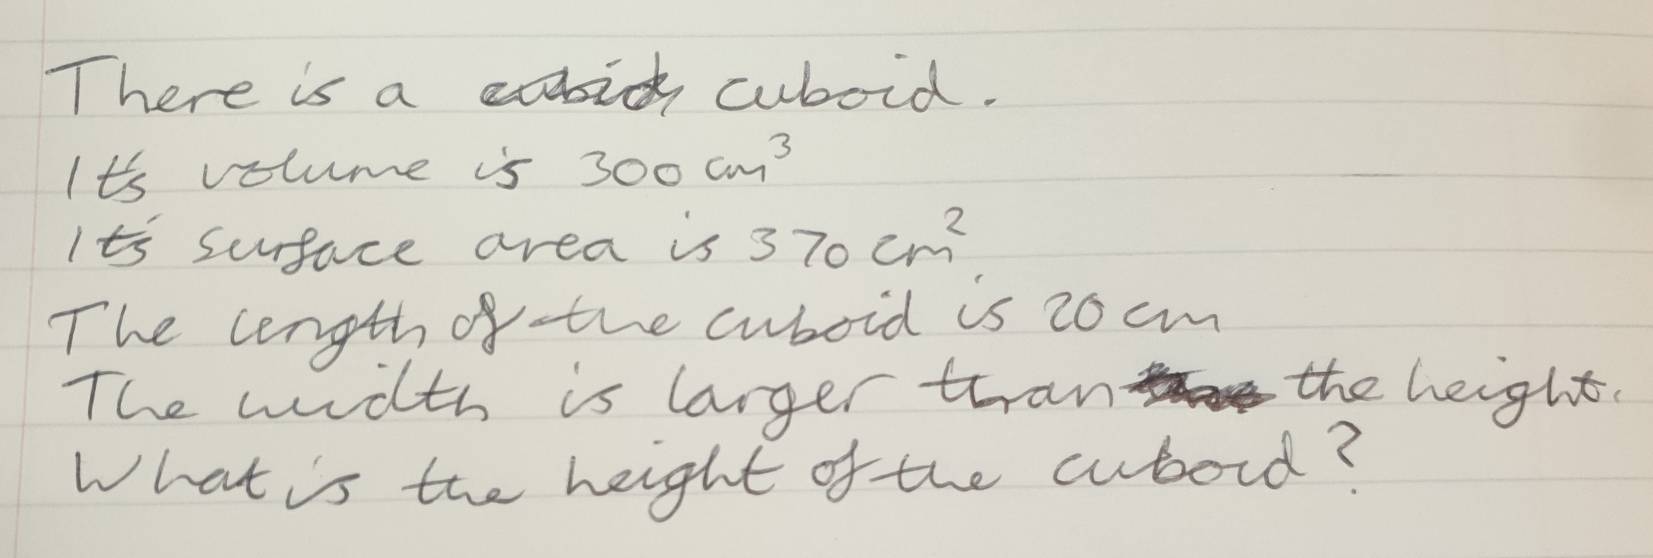 There is a cuboid.
It's volume is 300 cm³
It's surface area is 370 cm².
The length of the cuboid is 20 cm
The width is larger than the height.
What is the height of the cuboid?